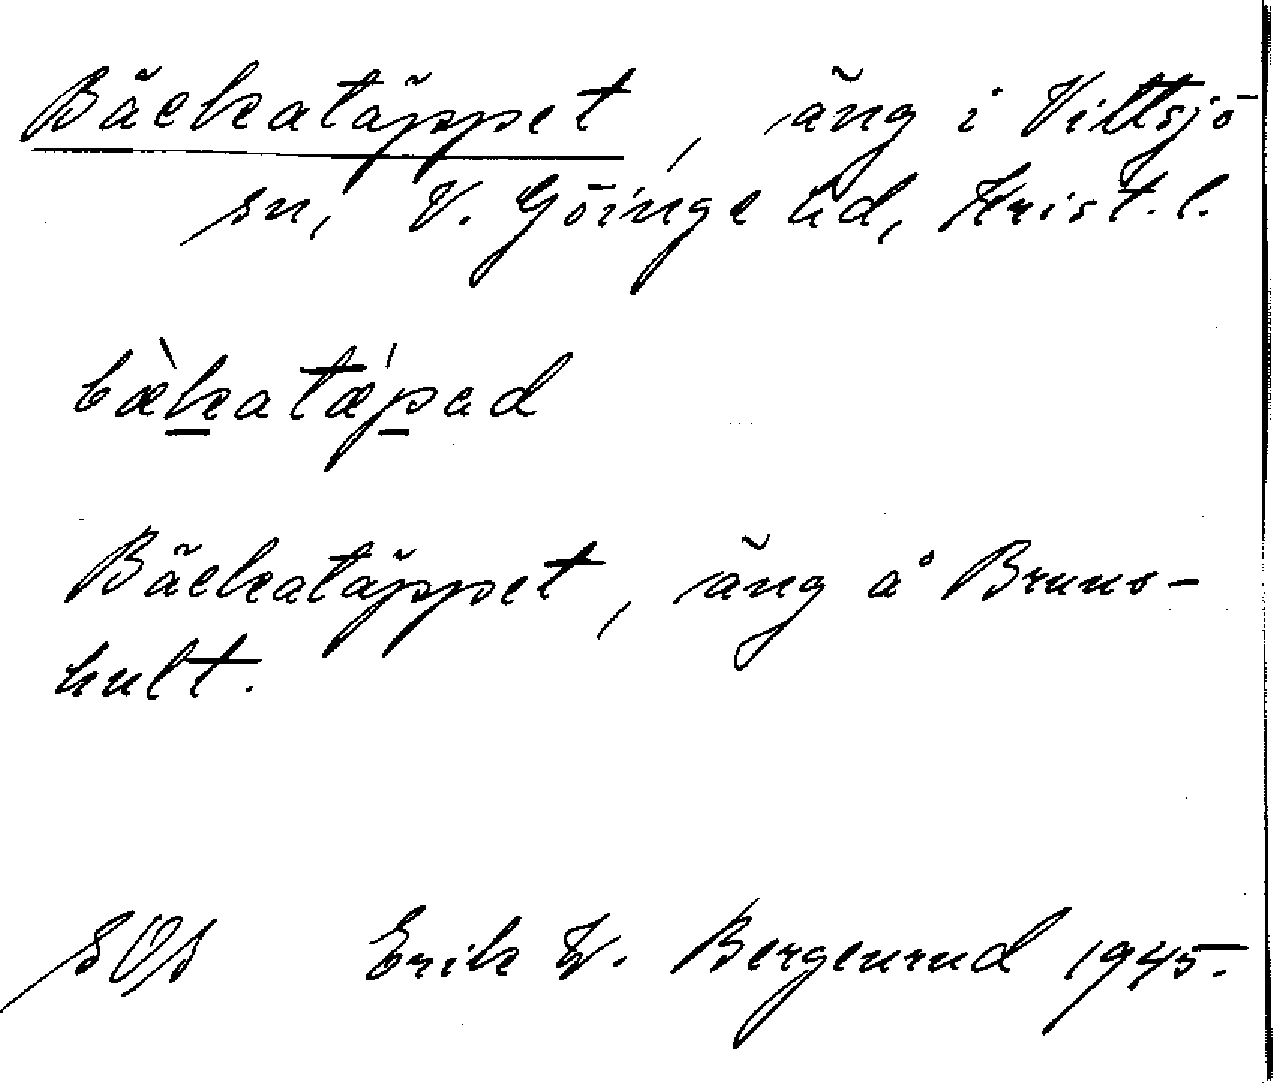 Bäckatäppet, äng i Vittsjö
sn, V. Göinge hd, Krist. l.
bæ̀katǽpad
Bäckatäppet, äng å Bruns-
hult.
SOS Erik W. Bergenrud 1945.